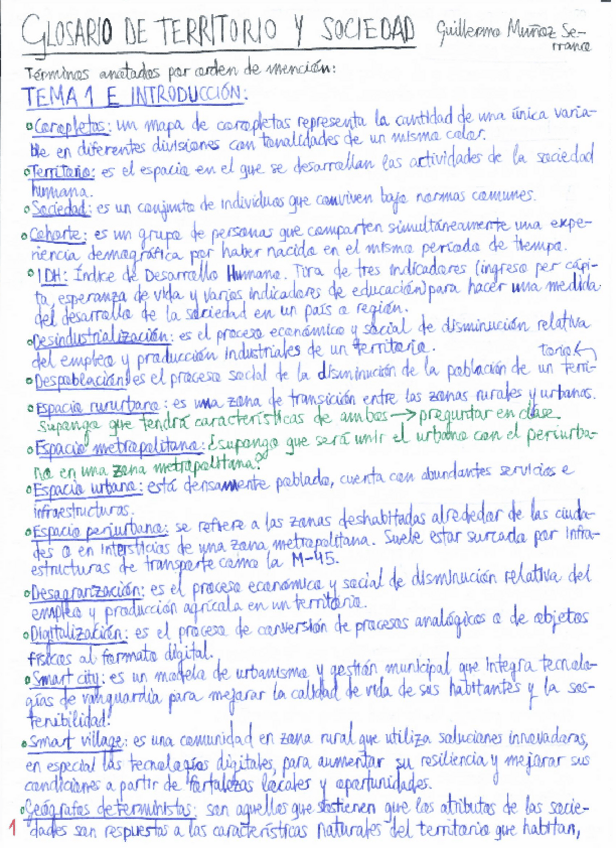 GLOSARIO DE TERRITORIO Y SOCIEDAD Guillermo Muñoz Se-
rrano
Términos anotados por orden de mención:
TEMA 1 E INTRODUCCIÓN:
Coropletas: un mapa de coropletas representa la cantidad de una única varia-
ble en diferentes divisiones con tonalidades de un mismo color.
Territorio: es el espacio en el que se desarrollan las actividades de la sociedad
humana.
Sociedad: es un conjunto de individuos que conviven bajo normas comunes.
Cohorte: es un grupo de personas que comparten simultáneamente una expe-
riencia demográfica por haber nacido en el mismo periodo de tiempo.
IDH: Índice de Desarrollo Humano. Tira de tres indicadores (ingreso per cápi-
ta, esperanza de vida y varios indicadores de educación) para hacer una medida
del desarrollo de la sociedad en un país o región.
Desindustrialización: es el proceso económico y social de disminución relativa
del empleo y producción industriales de un territorio.
Despoblación: es el proceso social de la disminución de la población de un terri-
torio
Espacio rururbano: es una zona de transición entre las zonas rurales y urbanas.
Supongo que tendrá características de ambos → preguntar en clase
Espacio metropolitano: ¿supongo que será unir el urbano con el periurba-
no en una zona metropolitana?
Espacio urbano: está densamente poblado, cuenta con abundantes servicios e
infraestructuras.
Espacio periurbano: se refiere a las zonas deshabitadas alrededor de las ciuda-
des o en intersticios de una zona metropolitana. Suele estar surcada por infra-
estructuras de transporte como la M-45.
Desagrarización: es el proceso económico y social de disminución relativa del
empleo y producción agrícola en un territorio.
Digitalización: es el proceso de conversión de procesos analógicos o de objetos
físicos al formato digital.
Smart city: es un modelo de urbanismo y gestión municipal que integra tecnolo-
gías de vanguardia para mejorar la calidad de vida de sus habitantes y la sos-
tenibilidad.
Smart village: es una comunidad en zona rural que utiliza soluciones innovadoras,
en especial las tecnologías digitales, para aumentar su resiliencia y mejorar sus
condiciones a partir de fortalezas locales y oportunidades.
Geógrafos deterministas: son aquellos que sostienen que los atributos de las socie-
1 dades son respuestas a las características naturales del territorio que habitan,